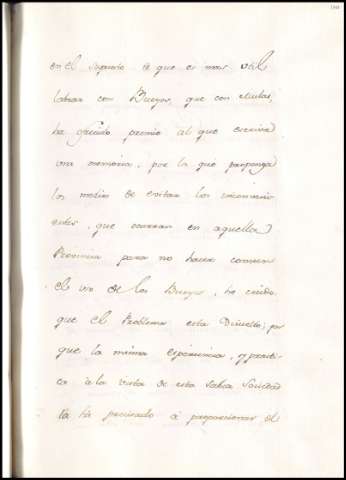 en el supuesto de que es mas util
labrar con Bueyes, que con mulas,
ha ofrecido premio al que escriva
una memoria, por la que proponga
los medios de evitar los inconveni
entes, que ocurran en aquella
Provincia para no hacer comun
el uso de los Bueyes, ha creido
que el Problema está disuelto; por
que la misma esperiencia, y practi
ca à la vista de esta sabia Sociedad
la ha precisado à proporcionar el